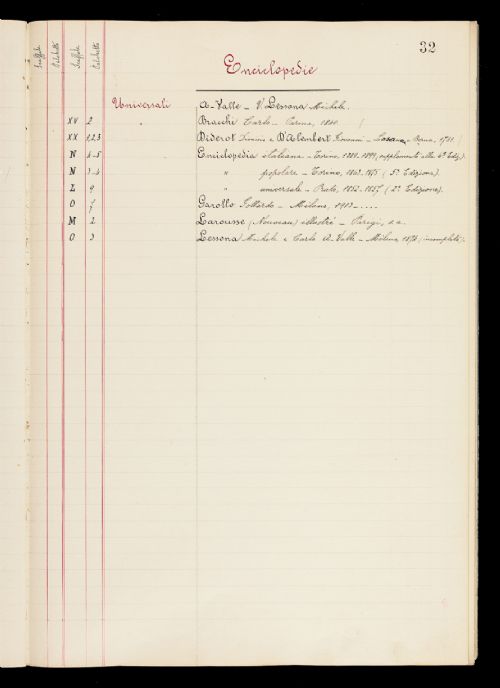 32
Scaffale Palchetto Scaffale Palchetto
Enciclopedie
Universali A-Valle - V. Lessona Michele.
XV 2 " Bracchi Carlo - Parma,
XX 1,2,3 Diderot Dionisio e D'Alembert Giovanni - Losanna e Berna, 1781.
N 4-5 Enciclopedia italiana - Torino, 1889-1899, supplemento alla 6ª Ediz.
N 3-4 " popolare - Torino, (5ª Edizione).
L 9 " universale - Prato, 1852-1857 (2ª Edizione).
O Garollo Gottardo - Milano, 1913 - ....
M 2 Larousse (Nouveau) illustré - Parigi, s.a.
O 3 Lessona Michele e Carlo A-Valle - Milano, (incompleta).